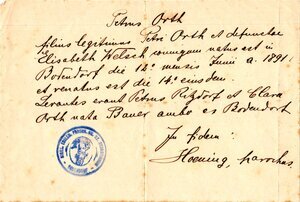 Petrus Orth
filius legitimus Petri Orth et defunctae
Elisabeth Welsch conjugum natus est in
Bodendorf die 12a mensis Junii a. 1891
et renatus est die 14a ejusdem.
Levantes erant Petrus Ritzdorf et Clara
Orth nata Bauer ambo ex Bodendorf
In fidem:
parochus